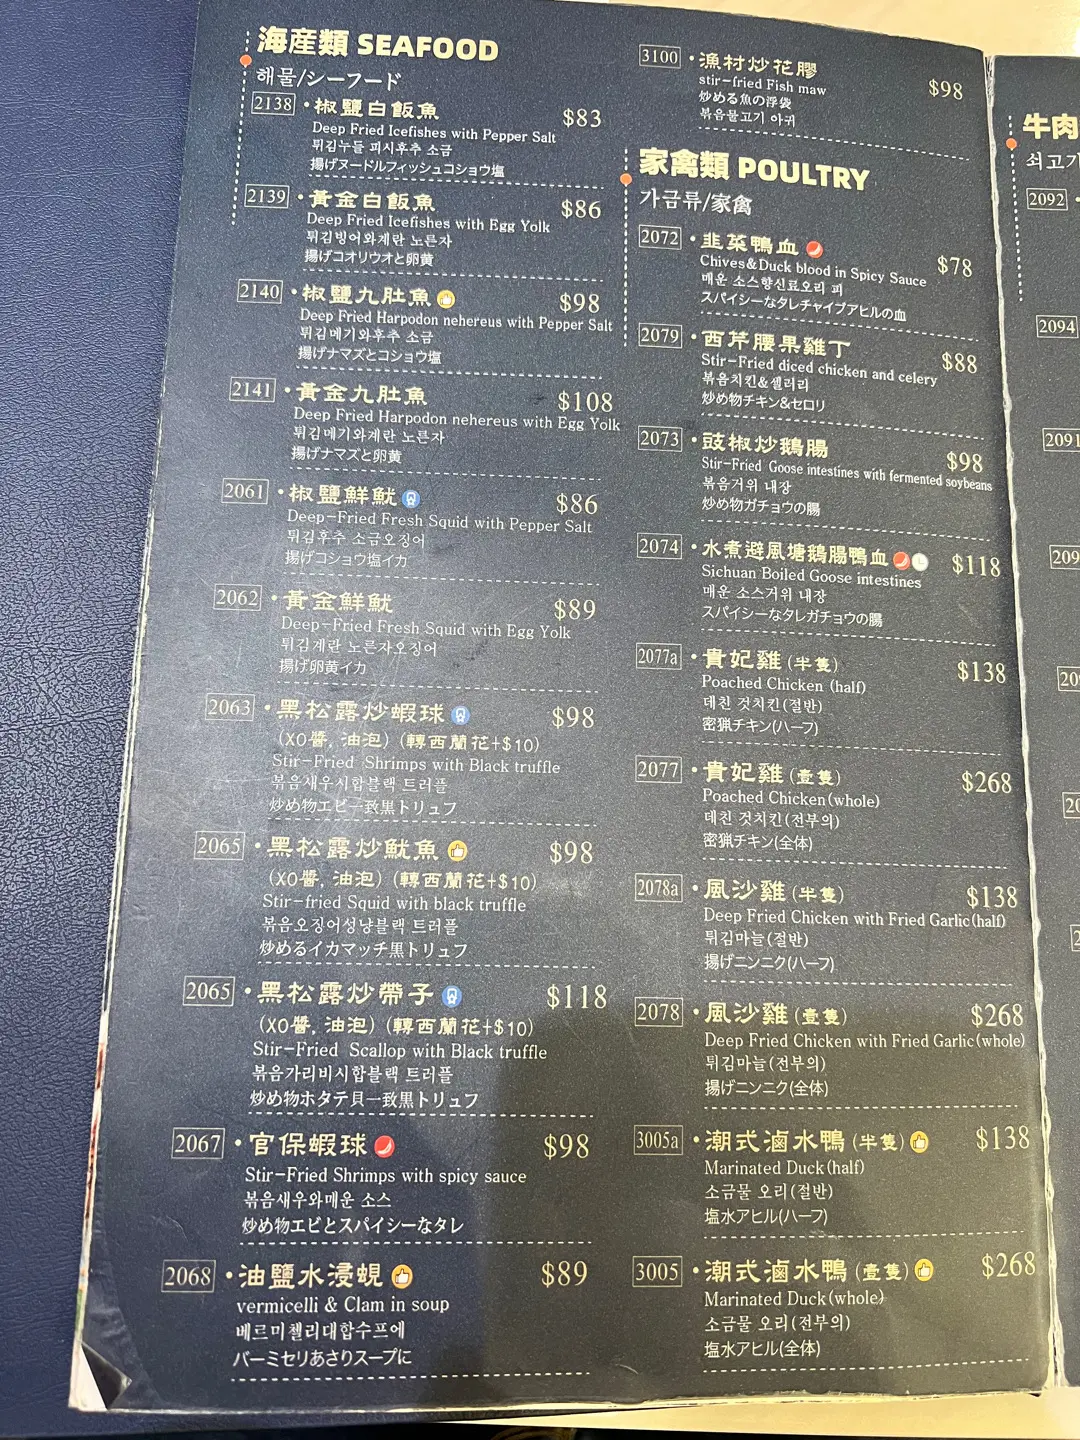 海産類 SEAFOOD
해물/シーフード
2138 ·椒鹽白飯魚 $83
Deep Fried Icefishes with Pepper Salt
튀김누들 피시후추 소금
揚げヌードルフィッシュコショウ塩
2139 ·黃金白飯魚 $86
Deep Fried Icefishes with Egg Yolk
튀김빙어와계란 노른자
揚げコオリウオと卵黄
2140 ·椒鹽九肚魚 $98
Deep Fried Harpodon nehereus with Pepper Salt
튀김메기와후추 소금
揚げナマズとコショウ塩
2141 ·黃金九肚魚 $108
Deep Fried Harpodon nehereus with Egg Yolk
튀김메기와계란 노른자
揚げナマズと卵黄
2061 ·椒鹽鮮魷 $86
Deep-Fried Fresh Squid with Pepper Salt
튀김후추 소금오징어
揚げコショウ塩イカ
2062 ·黃金鮮魷 $89
Deep-Fried Fresh Squid with Egg Yolk
튀김계란 노른자오징어
揚げ卵黄イカ
2063 ·黑松露炒蝦球 $98
(XO醬, 油泡) (轉西蘭花+$10)
Stir-Fried Shrimps with Black truffle
볶음새우시합블랙 트러플
炒め物エビ一致黒トリュフ
2065 ·黑松露炒魷魚 $98
(XO醬, 油泡) (轉西蘭花+$10)
Stir-fried Squid with black truffle
볶음오징어성냥블랙 트러플
炒めるイカマッチ黒トリュフ
2065 ·黑松露炒帶子 $118
(XO醬, 油泡) (轉西蘭花+$10)
Stir-Fried Scallop with Black truffle
볶음가리비시합블랙 트러플
炒め物ホタテ貝一致黒トリュフ
2067 ·官保蝦球 $98
Stir-Fried Shrimps with spicy sauce
볶음새우와매운 소스
炒め物エビとスパイシーなタレ
2068 ·油鹽水浸蜆 $89
vermicelli & Clam in soup
베르미첼리대합수프에
バーミセリあさりスープに
3100 ·漁村炒花膠 $98
stir-fried Fish maw
炒める魚の浮袋
볶음물고기 아귀
家禽類 POULTRY
가금류/家禽
2072 ·韭菜鴨血 $78
Chives&Duck blood in Spicy Sauce
매운 소스향신료오리 피
スパイシーなタレチャイブアヒルの血
2079 ·西芹腰果雞丁 $88
Stir-Fried diced chicken and celery
볶음치킨&샐러리
炒め物チキン&セロリ
2073 ·豉椒炒鵝腸 $98
Stir-Fried Goose intestines with fermented soybeans
볶음거위 내장
炒め物ガチョウの腸
2074 ·水煮避風塘鵝腸鴨血 $118
Sichuan Boiled Goose intestines
매운 소스거위 내장
スパイシーなタレガチョウの腸
2077a ·貴妃雞(半隻) $138
Poached Chicken (half)
데친 것치킨(절반)
密猟チキン(ハーフ)
2077 ·貴妃雞(壹隻) $268
Poached Chicken(whole)
데친 것치킨(전부의)
密猟チキン(全体)
2078a ·風沙雞(半隻) $138
Deep Fried Chicken with Fried Garlic(half)
튀김마늘(절반)
揚げニンニク(ハーフ)
2078 ·風沙雞(壹隻) $268
Deep Fried Chicken with Fried Garlic(whole)
튀김마늘(전부의)
揚げニンニク(全体)
3005a ·潮式滷水鴨(半隻) $138
Marinated Duck(half)
소금물 오리(절반)
塩水アヒル(ハーフ)
3005 ·潮式滷水鴨(壹隻) $268
Marinated Duck(whole)
소금물 오리(전부의)
塩水アヒル(全体)
牛肉
쇠고기
2092
2094
2091